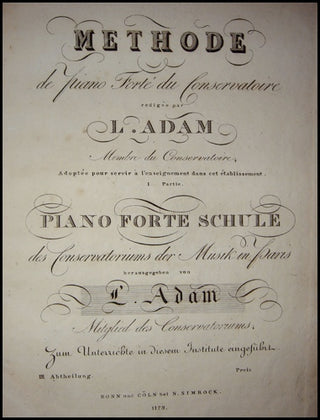 METHODE
de Piano Forté du Conservatoire
rédigée par
L. ADAM
Membre du Conservatoire,
Adoptée pour servir à l'enseignement dans cet établissement.
I Partie.
PIANO FORTE SCHULE
des Conservatoriums der Musik in Paris
herausgegeben von
L. Adam
Mitglied des Conservatoriums.
Zum Unterrichte in diesem Institute eingeführt.
III Abtheilung. Preis
BONN und CÖLN bei N. SIMROCK.